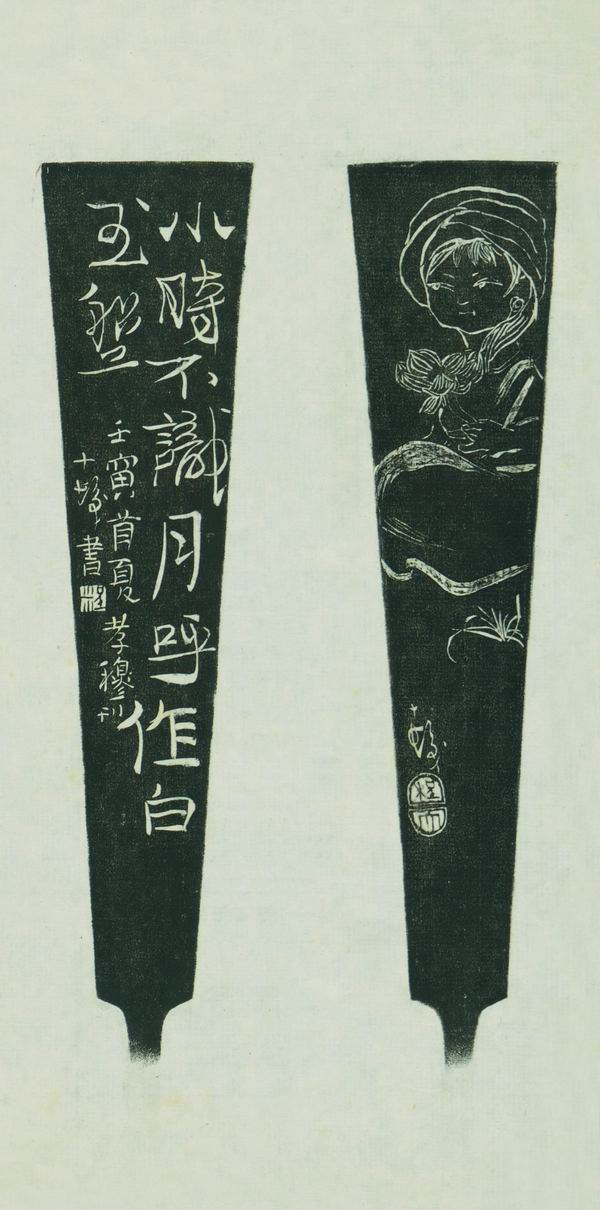 小時不識月呼作白
玉盤
壬寅首夏孝穆刊
十髮書
程
十髮
程